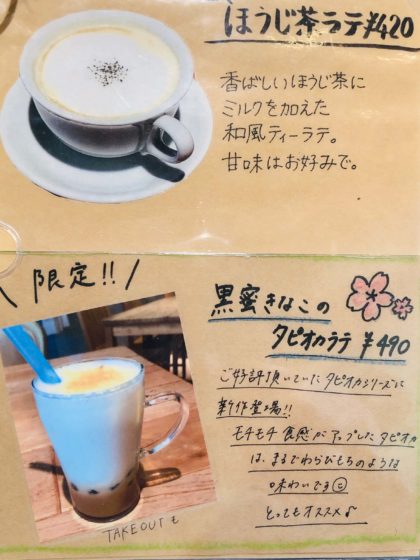 ほうじ茶ラテ ¥420
香ばしいほうじ茶に
ミルクを加えた
和風ティーラテ。
甘味はお好みで。
\ 限定!! /
黒蜜きなこの
タピオカラテ ¥490
ご好評頂いていたタピオカシリーズに
新作登場!!
モチモチ食感がアップしたタピオカ
は、まるでわらびもちのような
味わいです☺
とってもオススメ♪
TAKEOUTも